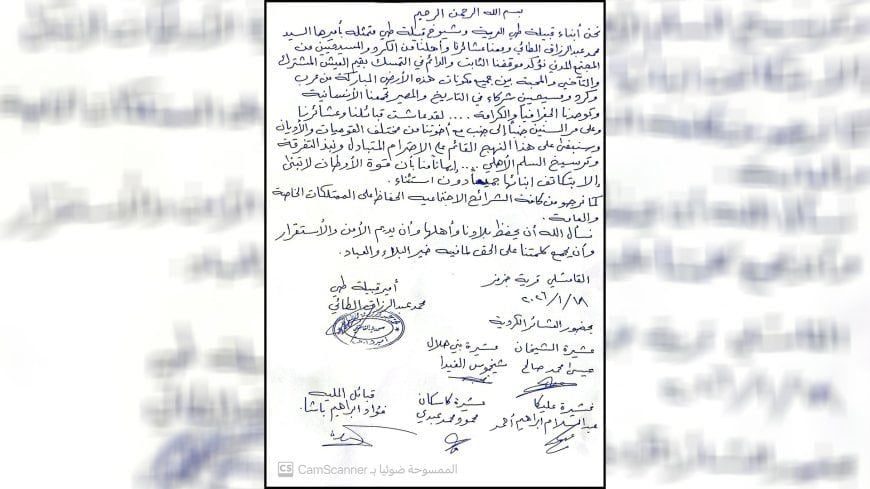 بسم الله الرحمن الرحيم
نحن أبناء قبيلة طي العربية وشيوخ قبيلة طي وتمثله بأميرها السيد
محمد عبدالرزاق الطائي ومعنا عشائرنا وأهلنا من الكرد والمسيحيين من
المجتمع المدني نؤكد موقفنا الثابت والدائم في التمسك بقيم العيش المشترك
والتآخي والمحبة بين جميع مكونات هذه الأرض المباركة من عرب
وكرد ومسيحيين شركاء في التاريخ والمصير تجمعنا الأنسانية
وتوحدنا الجغرافيا والكرامة .... لقد عاشت قبائلنا وعشائرنا
وعلى مر السنين جنباً إلى جنب مع أخوتنا من مختلف القوميات والأديان
وسنبقى على هذا النهج القائم على الاحترام المتبادل ونبذ التفرقة
وترسيخ السلم الأهلي .... إيماناً منا بأن قوة الأوطان لا تبنى
إلا بتكاتف ابنائها جميعاً دون استثناء .
كما نرجو من كافة الشرائح الاجتماعية الحفاظ على الممتلكات الخاصة
والعامة .
نسأل الله أن يحفظ بلادنا وأهلها وأن يديم الأمن والأستقرار
وأن يجمع كلمتنا على الحق لما فيه خير البلاد والعباد .
القامشلي قرية جرمز
٢٠٢٦/١/١٨
أمير قبيلة طي
محمد عبدالرزاق الطائي
بحضور العشائر الكردية
عشيرة الشيخان
حسن احمد صالح
عشيرة بني هلال
شيخموس الفيدا
عشيرة عليكا
عبدالسلام ابراهيم أحمد
عشيرة كاسكان
محمود محمد عبدي
قبائل الملية
فؤاد ابراهيم باشا
الممسوحة ضوئيا بـ CamScanner
CS